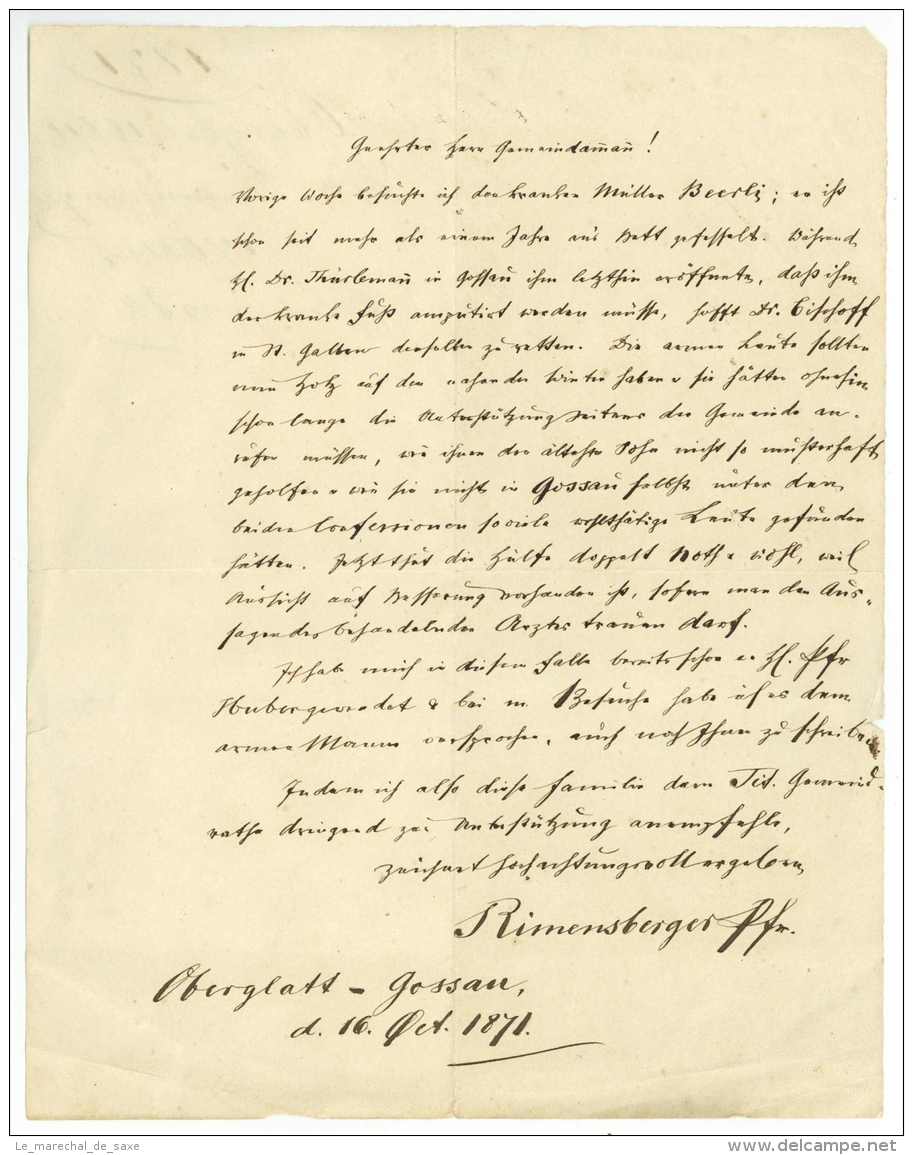 Geehrter Herr Gemeindamañ!
Vorige Woche besuchte ich den kranken Müller Beerli; er ist
schon seit mehr als einem Jahre ans Bett gefesselt. Während
H. Dr. Thürlemañ in Gossau ihm letzthin eröffnete, daß ihm
der kranke Fuß amputirt werden müsse, hofft Dr. Bischoff
in St. Gallen denselben zu retten. Die armen Leute sollten
nun Holz auf den nahenden Winter haben & sie hätten ohnehin
schon lange die Unterstützung seitens der Gemeinde an-
rufen müssen, wenn ihnen der älteste Sohn nicht so musterhaft
geholfen & wenn sie nicht in Gossau selbst unter den
beiden Confessionen soviele wohlthätige Leute gefunden
hätten. Jetzt thut die Hülfe doppelt Noth & wohl, weil
Aussicht auf Besserung vorhanden ist, sofern man den Aus-
sagen des behandelnden Arztes trauen darf.
Ich habe mich in diesem Falle bereits schon an H. Pfr
Huber gewendet & bei m. Besuche habe ich es dem
armen Manne versprochen, auch noch Ihnen zu schreiben
Indem ich also diese Familie dem Tit. Gemeind-
rathe dringend zur Unterstützung anempfehle,
zeichnet hochachtungsvoll ergeben
Rimensberger Pfr.
Oberglatt - Gossau,
d. 16. Oct. 1871.
Le_marechal_de_saxe
www.delcampe.net